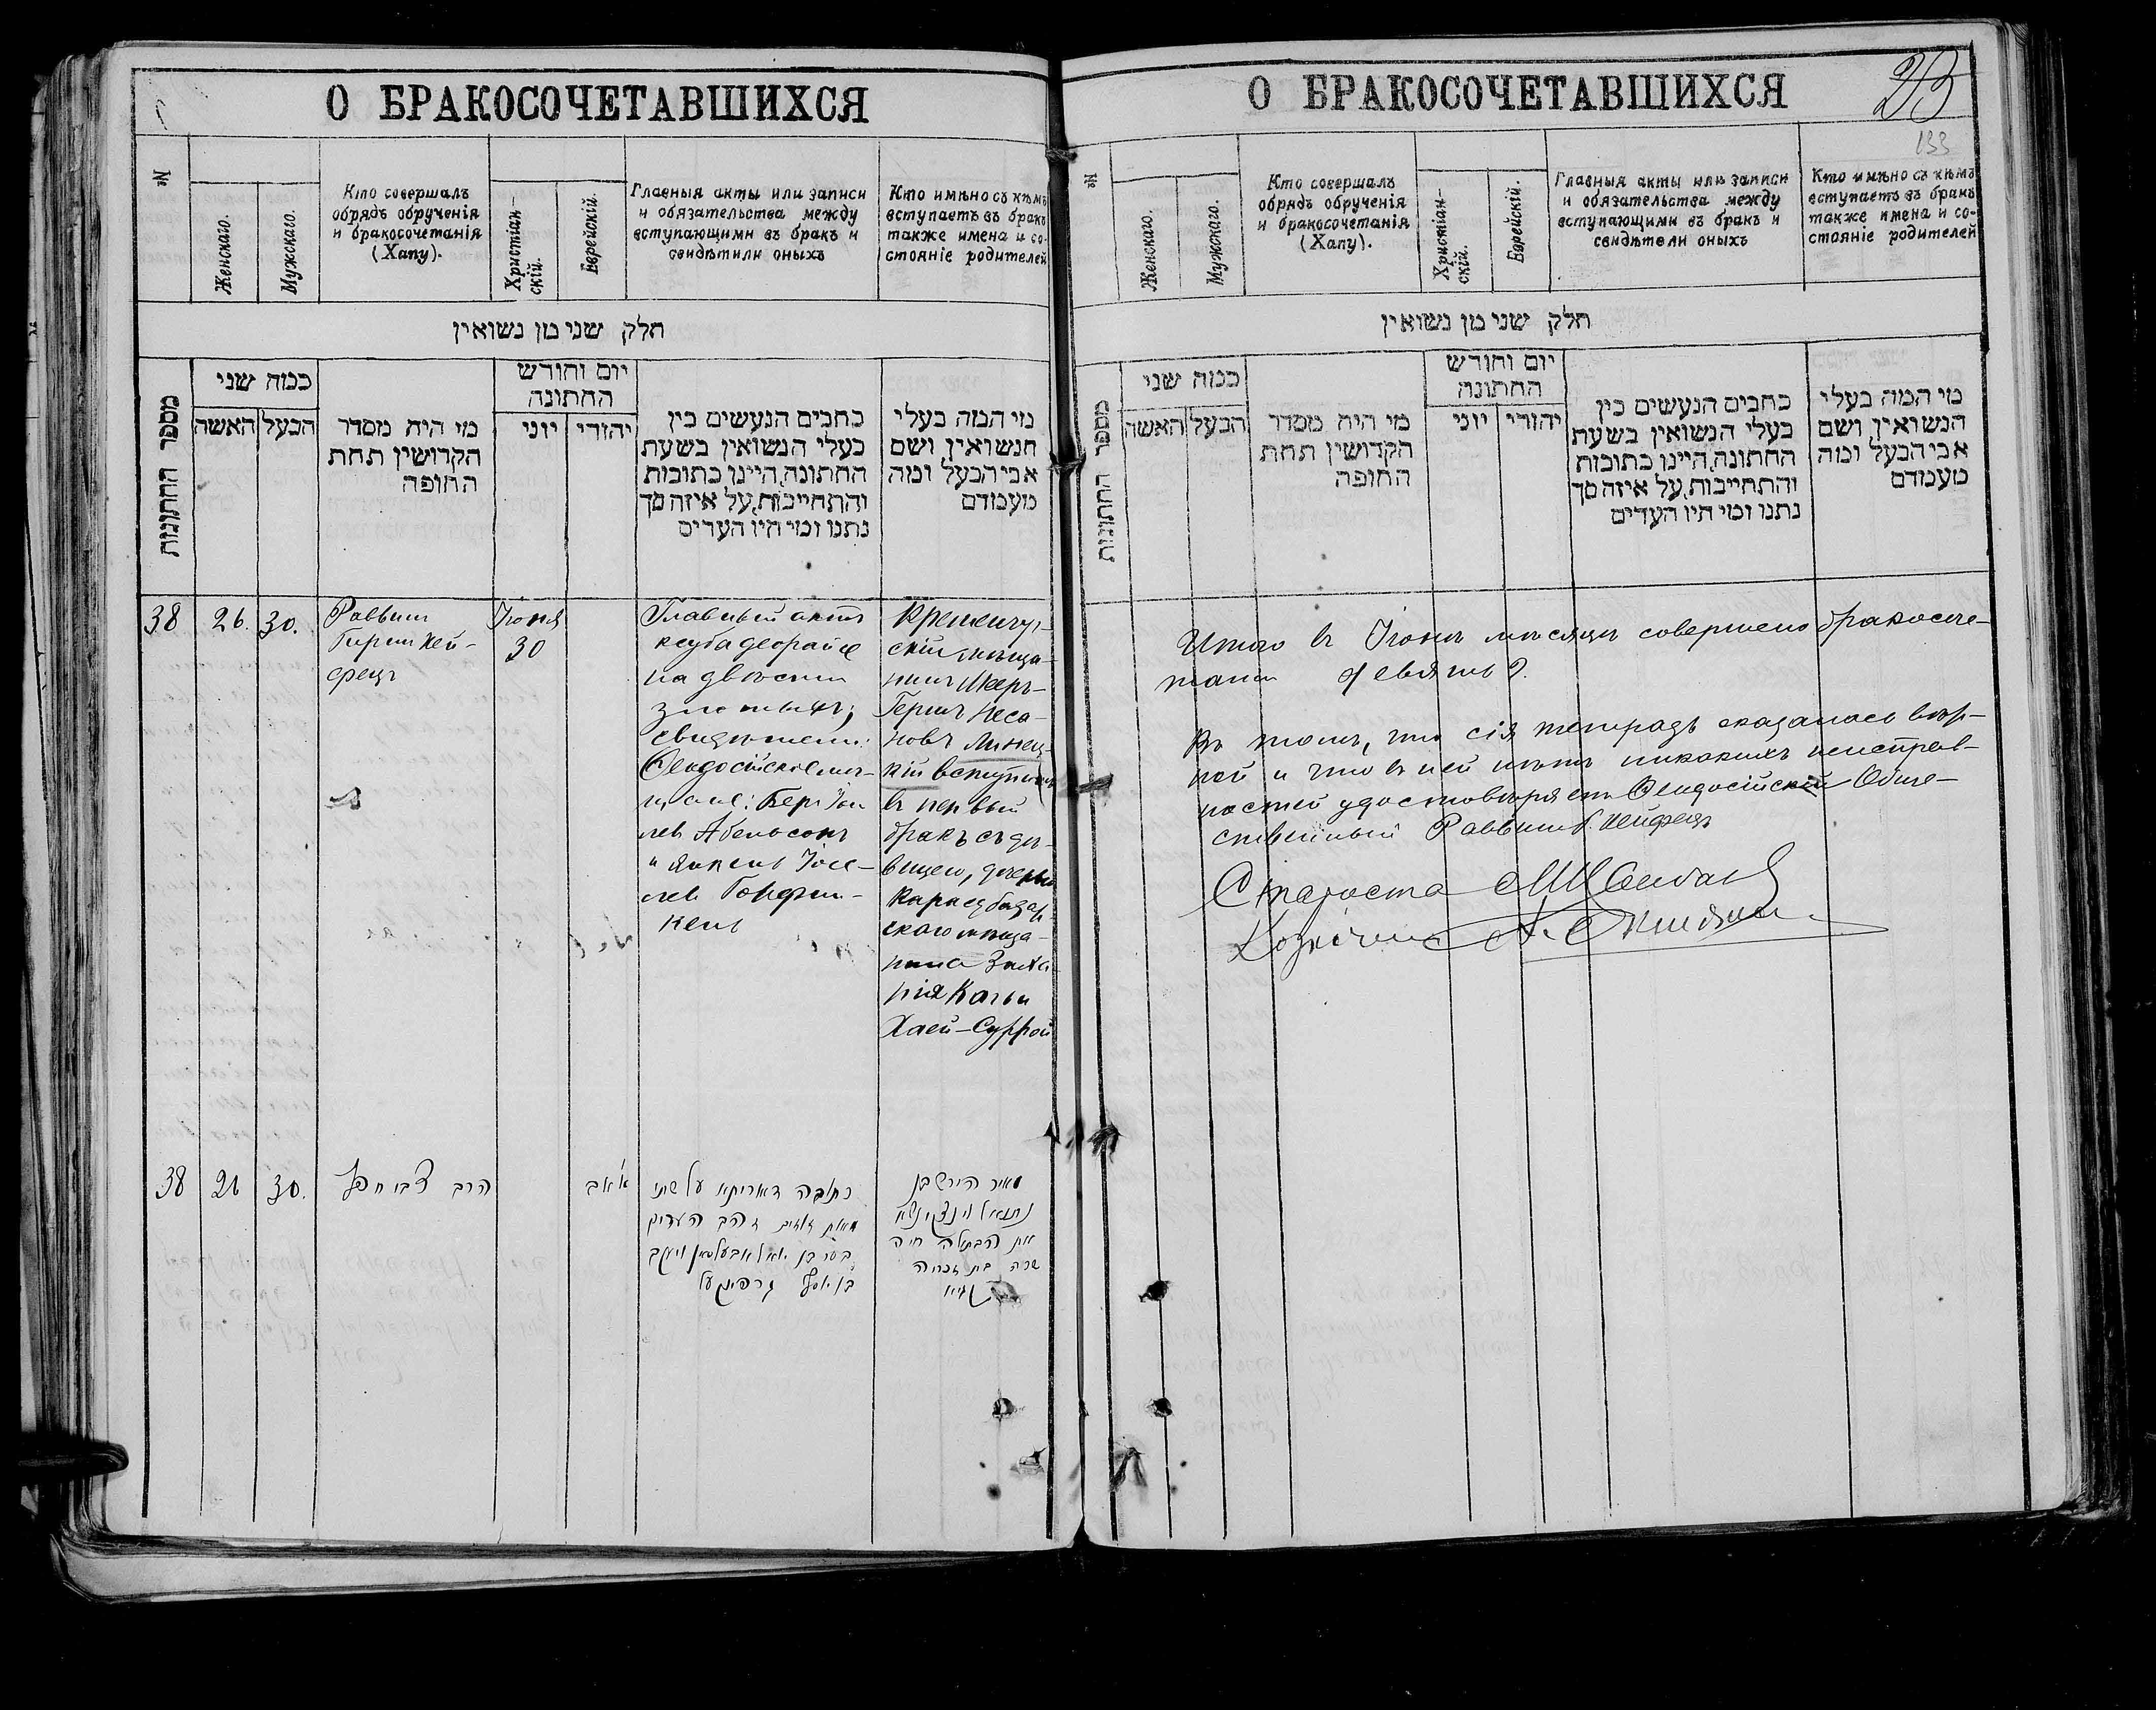 О БРАКОСОЧЕТАВШИХСЯ
№
Женскаго.
Мужскаго.
Кто совершалъ
обрядъ обрученія
и бракосочетанія
(Хапу).
Христіан-
скій.
Еврейскій.
Главныя акты или записи
и обязательства между
вступающими въ бракъ и
свидѣтили оныхъ
Кто имѣно съ кѣмъ
вступаетъ въ бракъ
также имена и со-
стояніе родителей
חלק שני מן נשואין
מספר החתונות
כמה שני
האשה
הבעל
מי היה מסדר
הקדושין תחת
החופה
יום וחודש
החתונה
יוני
יהודי
כתבים הנעשים בין
בעלי הנשואין בשעת
החתונה, היינו כתובות
והתחייבות, על איזה סך
נתנו ומי היו העדים
מי המה בעלי
הנשואין ושם
אבי הבעל ומה
מעמדם
38
26.
30.
Раввинъ
Гиршъ Хей-
фецъ
Іюня
30
Главный актъ
кеуба деорайсе
на двѣсти
злотыхъ;
свидѣтели:
Ѳеодосійскіе мѣ-
щане: Беръ Іои
левъ Абельсонъ
и Янкель Іосе-
левъ Горфин-
кель
Кременчуг-
скій мѣща-
нинъ Мееръ-
Гершъ Неса-
новъ Линец-
кій вступилъ
въ первый
бракъ съ дѣ-
вицею, дочерью
Карасубазар-
скаго мѣща-
нина Заха-
рія Качьи
Хаей-Суррой
38
26
30.
הרב צבי חפץ
א' אב
כתובה דאוריתא על שתי
מאות זוזים זהב העדים
בער בן יואל אבעלסאן ויעקב
בן יוסף גרפינקעל
מאיר הירש בן
נתנאל לינצקי נשא
את הבתולה חיה
שרה בת זכריה
О БРАКОСОЧЕТАВШИХСЯ
133
№
Женскаго.
Мужскаго.
Кто совершалъ
обрядъ обрученія
и бракосочетанія
(Хапу).
Христіан-
скій.
Еврейскій.
Главныя акты или записи
и обязательства между
вступающими въ бракъ и
свидѣтели оныхъ
Кто имѣно съ кѣмъ
вступаетъ въ бракъ
также имена и со-
стояніе родителей
חלק שני מן נשואין
מספר החתונות
כמה שני
האשה
הבעל
מי היה מסדר
הקדושין תחת
החופה
יום וחודש
החתונה
יוני
יהודי
כתבים הנעשים בין
בעלי הנשואין בשעת
החתונה, היינו כתובות
והתחייבות, על איזה סך
נתנו ומי היו העדים
מי המה בעלי
הנשואין ושם
אבי הבעל ומה
מעמדם
Итого въ Іюнѣ мѣсяцѣ совершено бракосоче-
таній девять 9.
Въ томъ, что сія тетрадь оказалась вѣр-
ной и что въ ней нѣтъ никакихъ неисправ-
ностей удостовѣряетъ Ѳеодосійскій Обще-
ственный Раввинъ Г. Хейфецъ
Староста